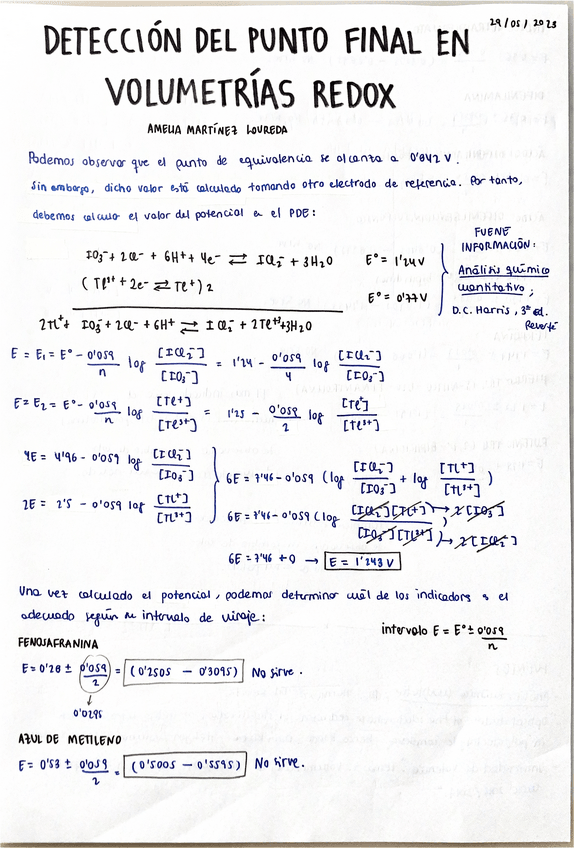 29/05/2023
DETECCIÓN DEL PUNTO FINAL EN
VOLUMETRÍAS REDOX
AMELIA MARTÍNEZ LOUREDA
Podemos observar que el punto de equivalencia se alcanza a 0'842 V.
Sin embargo, dicho valor está calculado tomando otro electrodo de referencia. Por tanto,
debemos calcular el valor del potencial en el PDE:
IO₃⁻ + 2Cl⁻ + 6H⁺ + 4e⁻ ⇄ ICl₂⁻ + 3H₂O E° = 1'24 V
(Tl³⁺ + 2e⁻ ⇄ Tl⁺) 2 E° = 0'77 V
FUENE
INFORMACIÓN:
Análisis químico
cuantitativo;
D.C. Harris, 3ª ed.
Reverté
2Tl⁺ + IO₃⁻ + 2Cl⁻ + 6H⁺ ⇄ ICl₂⁻ + 2Tl⁺³ + 3H₂O
E = E₁ = E° - 0'059/n log [ICl₂⁻]/[IO₃⁻] = 1'24 - 0'059/4 log [ICl₂⁻]/[IO₃⁻]
E = E₂ = E° - 0'059/n log [Tl⁺]/[Tl³⁺] = 1'25 - 0'059/2 log [Tl⁺]/[Tl³⁺]
4E = 4'96 - 0'059 log [ICl₂⁻]/[IO₃⁻]
2E = 2'5 - 0'059 log [Tl⁺]/[Tl³⁺]
6E = 7'46 - 0'059 (log [ICl₂⁻]/[IO₃⁻] + log [Tl⁺]/[Tl³⁺])
6E = 7'46 - 0'059 (log [ICl₂⁻][Tl⁺]/[IO₃⁻][Tl³⁺]) → 2[IO₃⁻] → 2[ICl₂⁻]
6E = 7'46 + 0 → E = 1'243 V
Una vez calculado el potencial, podemos determinar cuál de los indicadores es el
adecuado según su intervalo de viraje:
intervalo E = E° ± 0'059/n
FENOSAFRANINA
E = 0'28 ± 0'059/2 = (0'2505 - 0'3095) No sirve.
↓
0'0295
AZUL DE METILENO
E = 0'53 ± 0'059/2 = (0'5005 - 0'5595) No sirve.